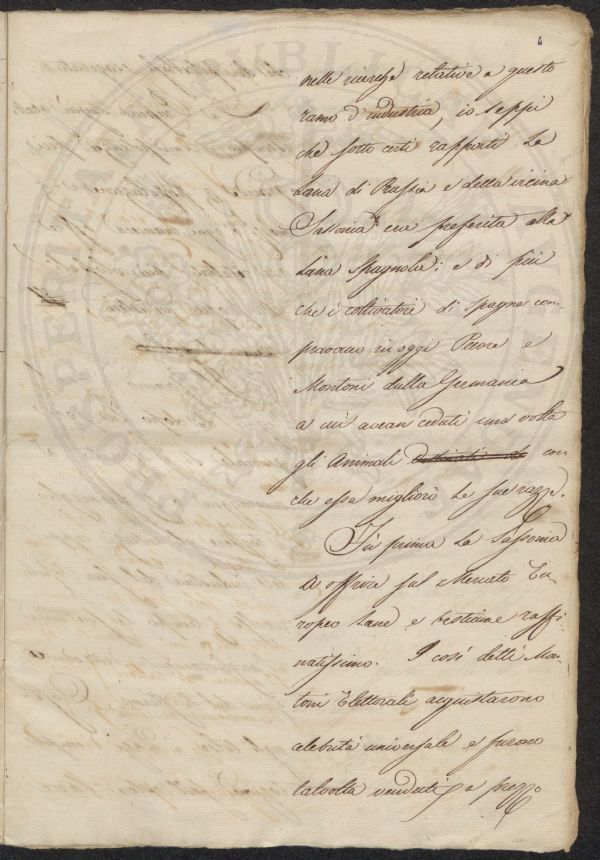 6
nelle ricerche relative a questo
ramo d'industria, io seppi
che sotto certi rapporti la
Lana di Russia e della vicina
Sassonia era preferita alla
Lana Spagnola: e di più
che i coltivatori di Spagna com-
pravano in oggi Pecore e
Montoni dalla Germania
a cui avean ceduti una volta
gli animali con
che essa migliorò le sue razze.
Fù prima la Sassonia
a offrire sul Mercato Eu-
ropeo Lane e bestiame raffi-
natissimo. I così detti Mon-
toni Elettorali acquistarono
celebrità universale e furono
talvolta venduti a prezzo